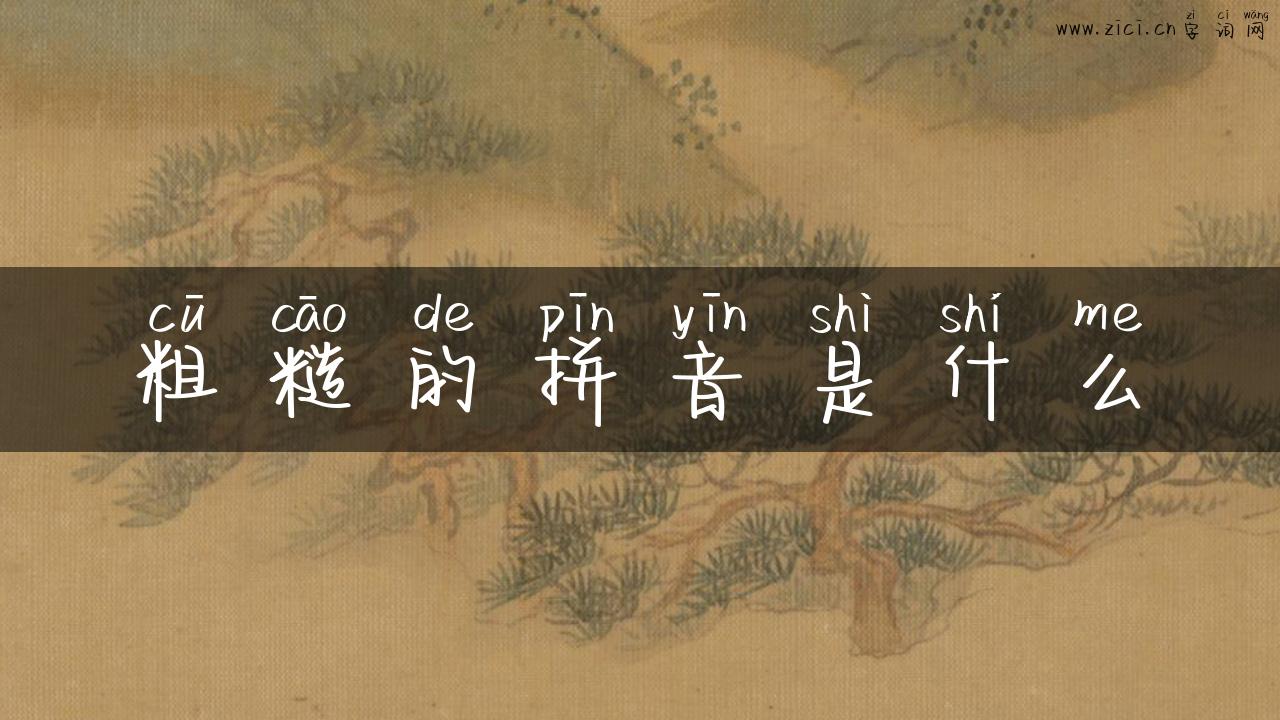 zì cí wǎng
www.zici.cn 字词网
cū cāo de pīn yīn shì shí me
粗糙的拼音是什么